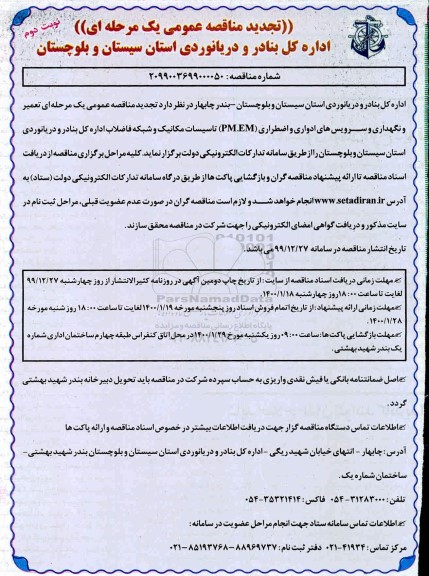 نوبت دوم
((تجدید مناقصه عمومی یک مرحله ای))
اداره کل بنادر و دریانوردی استان سیستان و بلوچستان
شماره مناقصه: ۲۰۹۹۰۰۳۶۹۹۰۰۰۰۵۰
اداره کل بنادر و دریانوردی استان سیستان و بلوچستان -بندر چابهار در نظر دارد تجدید مناقصه عمومی یک مرحله ای تعمیر
و نگهداری و سرویس های ادواری و اضطراری (PM.EM) تاسیسات مکانیک و شبکه فاضلاب اداره کل بنادر و دریانوردی
استان سیستان و بلوچستان را از طریق سامانه تدارکات الکترونیکی دولت برگزار نماید. کلیه مراحل برگزاری مناقصه از دریافت
اسناد مناقصه تا ارائه پیشنهاد مناقصه گران و بازگشایی پاکت ها از طریق درگاه سامانه تدارکات الکترونیکی دولت (ستاد) به
آدرس www.setadiran.ir انجام خواهد شد و لازم است مناقصه گران در صورت عدم عضویت قبلی، مراحل ثبت نام در
سایت مذکور و دریافت گواهی امضای الکترونیکی را جهت شرکت در مناقصه محقق سازند.
تاریخ انتشار مناقصه در سامانه ۹۹/۱۲/۲۷ می باشد.
مهلت زمانی دریافت اسناد مناقصه از سایت: از تاریخ چاپ دومین آگهی در روزنامه کثیرالانتشار از روز چهارشنبه ۹۹/۱۲/۲۷
لغایت تا ساعت ۱۸:۰۰ روز چهارشنبه ۱۴۰۰/۱/۱۸.
مهلت زمانی ارائه پیشنهاد: از تاریخ اتمام فروش اسناد روز پنجشنبه مورخه ۱۴۰۰/۱/۱۹ لغایت تا ساعت ۱۸:۰۰ روز شنبه مورخه
۱۴۰۰/۱/۲۸.
مهلت بازگشایی پاکت ها: ساعت ۰۹:۰۰ روز یکشنبه مورخ ۱۴۰۰/۱/۲۹ در محل اتاق کنفراس طبقه چهارم ساختمان اداری شماره
یک بندر شهید بهشتی.
اصل ضمانتنامه بانکی یا فیش نقدی واریزی به حساب سپرده شرکت در مناقصه باید تحویل دبیرخانه بندر شهید بهشتی
گردد.
اطلاعات تماس دستگاه مناقصه گزار جهت دریافت اطلاعات بیشتر در خصوص اسناد مناقصه و ارائه پاکت ها
آدرس: چابهار - انتهای خیابان شهید ریگی - اداره کل بنادر و دریانوردی استان سیستان و بلوچستان بندر شهید بهشتی-
ساختمان شماره یک.
تلفن: ۳۱۲۸۳۰۰۰-۰۵۴ فاکس: ۳۵۳۲۱۴۱۴-۰۵۴
اطلاعات تماس سامانه ستاد جهت انجام مراحل عضویت در سامانه:
مرکز تماس: ۴۱۹۳۴-۰۲۱ دفتر ثبت نام: ۸۸۹۶۹۷۳۷-۸۵۱۹۳۷۶۸-۰۲۱